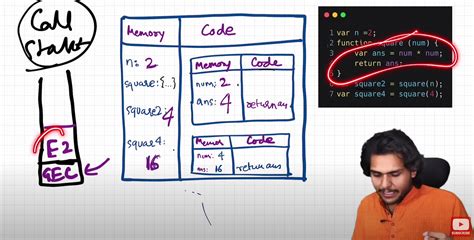 Call
Stack
E2
GEC
Memory
Code
n: 2
square: {...}
square2: 4
square4: 16
Memory Code
num: 2
ans: 4
return ans
Memor Code
num: 4
ans: 16
return ans
1 var n =2;
2 function square (num) {
3 var ans = num * num;
return ans;
}
square2 = square(n);
7 var square4 = square(4);
SUBSCRIBE